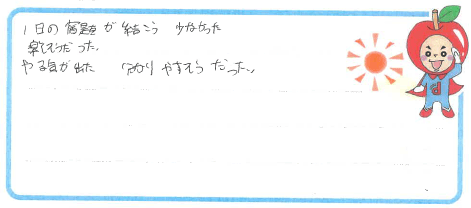 1日の宿題が結こう少なかった
楽そうだった。
やる気が出た 分かりやすそうだった。
d